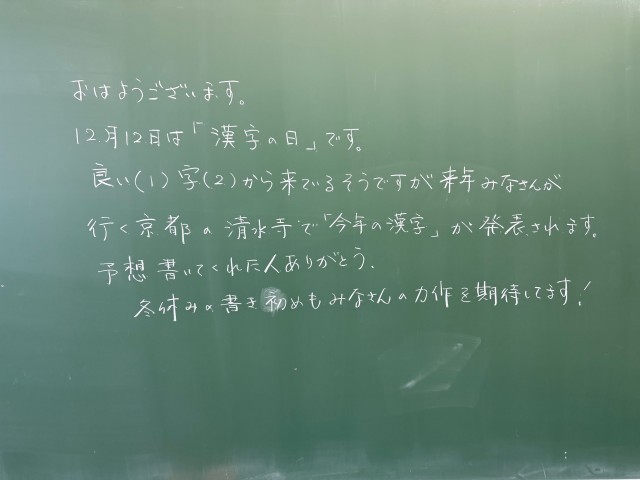 おはようございます。
12月12日は「漢字の日」です。
良い(1)字(2)から来でいるそうですが来年みなさんが
行く京都の清水寺で「今年の漢字」が発表されます。
予想書いてくれた人ありがとう.
冬休みの書き初めもみなさんの力作を期待してます!